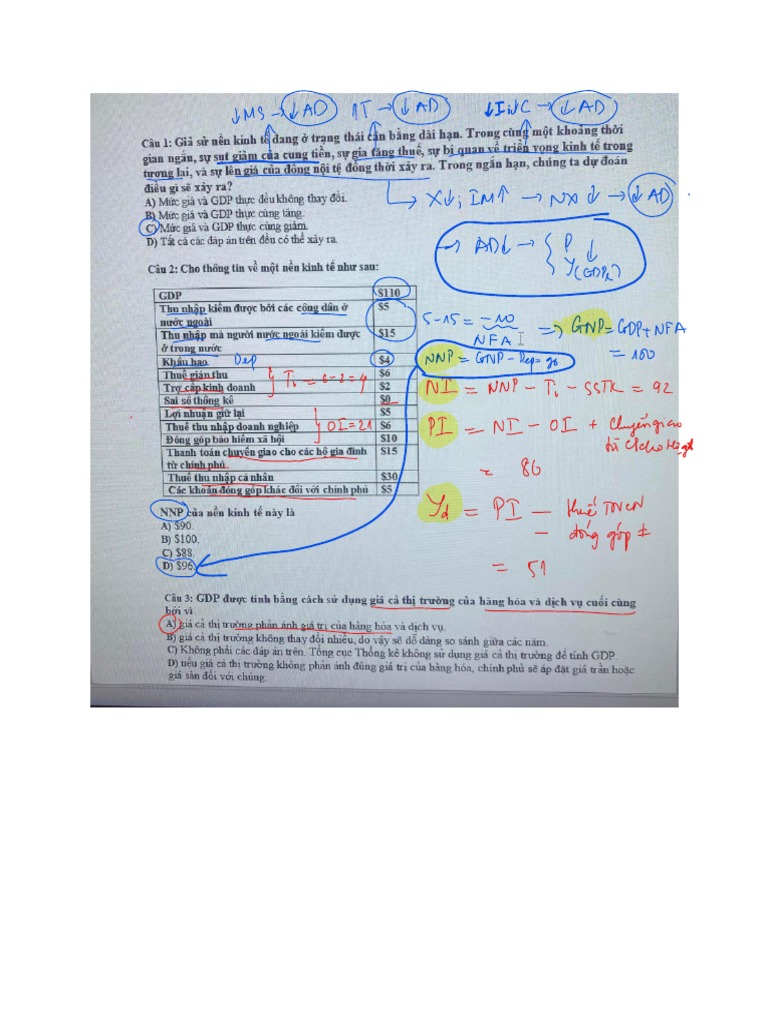 ↓MS → ↓AD ↑T → ↓AD ↓I;↓C → ↓AD
Câu 1: Giả sử nền kinh tế đang ở trạng thái cân bằng dài hạn. Trong cùng một khoảng thời
gian ngắn, sự sụt giảm của cung tiền, sự gia tăng thuế, sự bi quan về triển vọng kinh tế trong
tương lai, và sự lên giá của đồng nội tệ đồng thời xảy ra. Trong ngắn hạn, chúng ta dự đoán
điều gì sẽ xảy ra?
X↓; IM↑ → NX↓ → ↓AD
A) Mức giá và GDP thực đều không thay đổi.
B) Mức giá và GDP thực cùng tăng.
C) Mức giá và GDP thực cùng giảm.
D) Tất cả các đáp án trên đều có thể xảy ra.
→ AD↓ → { P ↓
Y(GDPr)
Câu 2: Cho thông tin về một nền kinh tế như sau:
GDP $110
Thu nhập kiếm được bởi các công dân ở $5
nước ngoài
5-15 = -10
NFA
=> GNP = GDP + NFA
= 100
Thu nhập mà người nước ngoài kiếm được $15
ở trong nước
Khấu hao Dep $4
NNP = GNP - Dep = 96
Thuế gián thu $6
Trợ cấp kinh doanh $2
} Ti = 6-2 = 4
NI = NNP - Ti - SSTK = 92
Sai số thống kê $0
Lợi nhuận giữ lại $5
Thuế thu nhập doanh nghiệp $6
Đóng góp bảo hiểm xã hội $10
} OI = 21
PI = NI - OI + chuyển giao
từ CP cho Hộ gđ
= 86
Thanh toán chuyển giao cho các hộ gia đình $15
từ chính phủ
Thuế thu nhập cá nhân $30
Các khoản đóng góp khác đối với chính phủ $5
Yd = PI - thuế TNCN
- đóng góp ≠
= 51
NNP của nền kinh tế này là
A) $90.
B) $100.
C) $88.
D) $96.
Câu 3: GDP được tính bằng cách sử dụng giá cả thị trường của hàng hóa và dịch vụ cuối cùng
bởi vì
A) giá cả thị trường phản ánh giá trị của hàng hóa và dịch vụ.
B) giá cả thị trường không thay đổi nhiều, do vậy sẽ dễ dàng so sánh giữa các năm.
C) Không phải các đáp án trên. Tổng cục Thống kê không sử dụng giá cả thị trường để tính GDP.
D) nếu giá cả thị trường không phản ánh đúng giá trị của hàng hóa, chính phủ sẽ áp đặt giá trần hoặc
giá sàn đối với chúng.